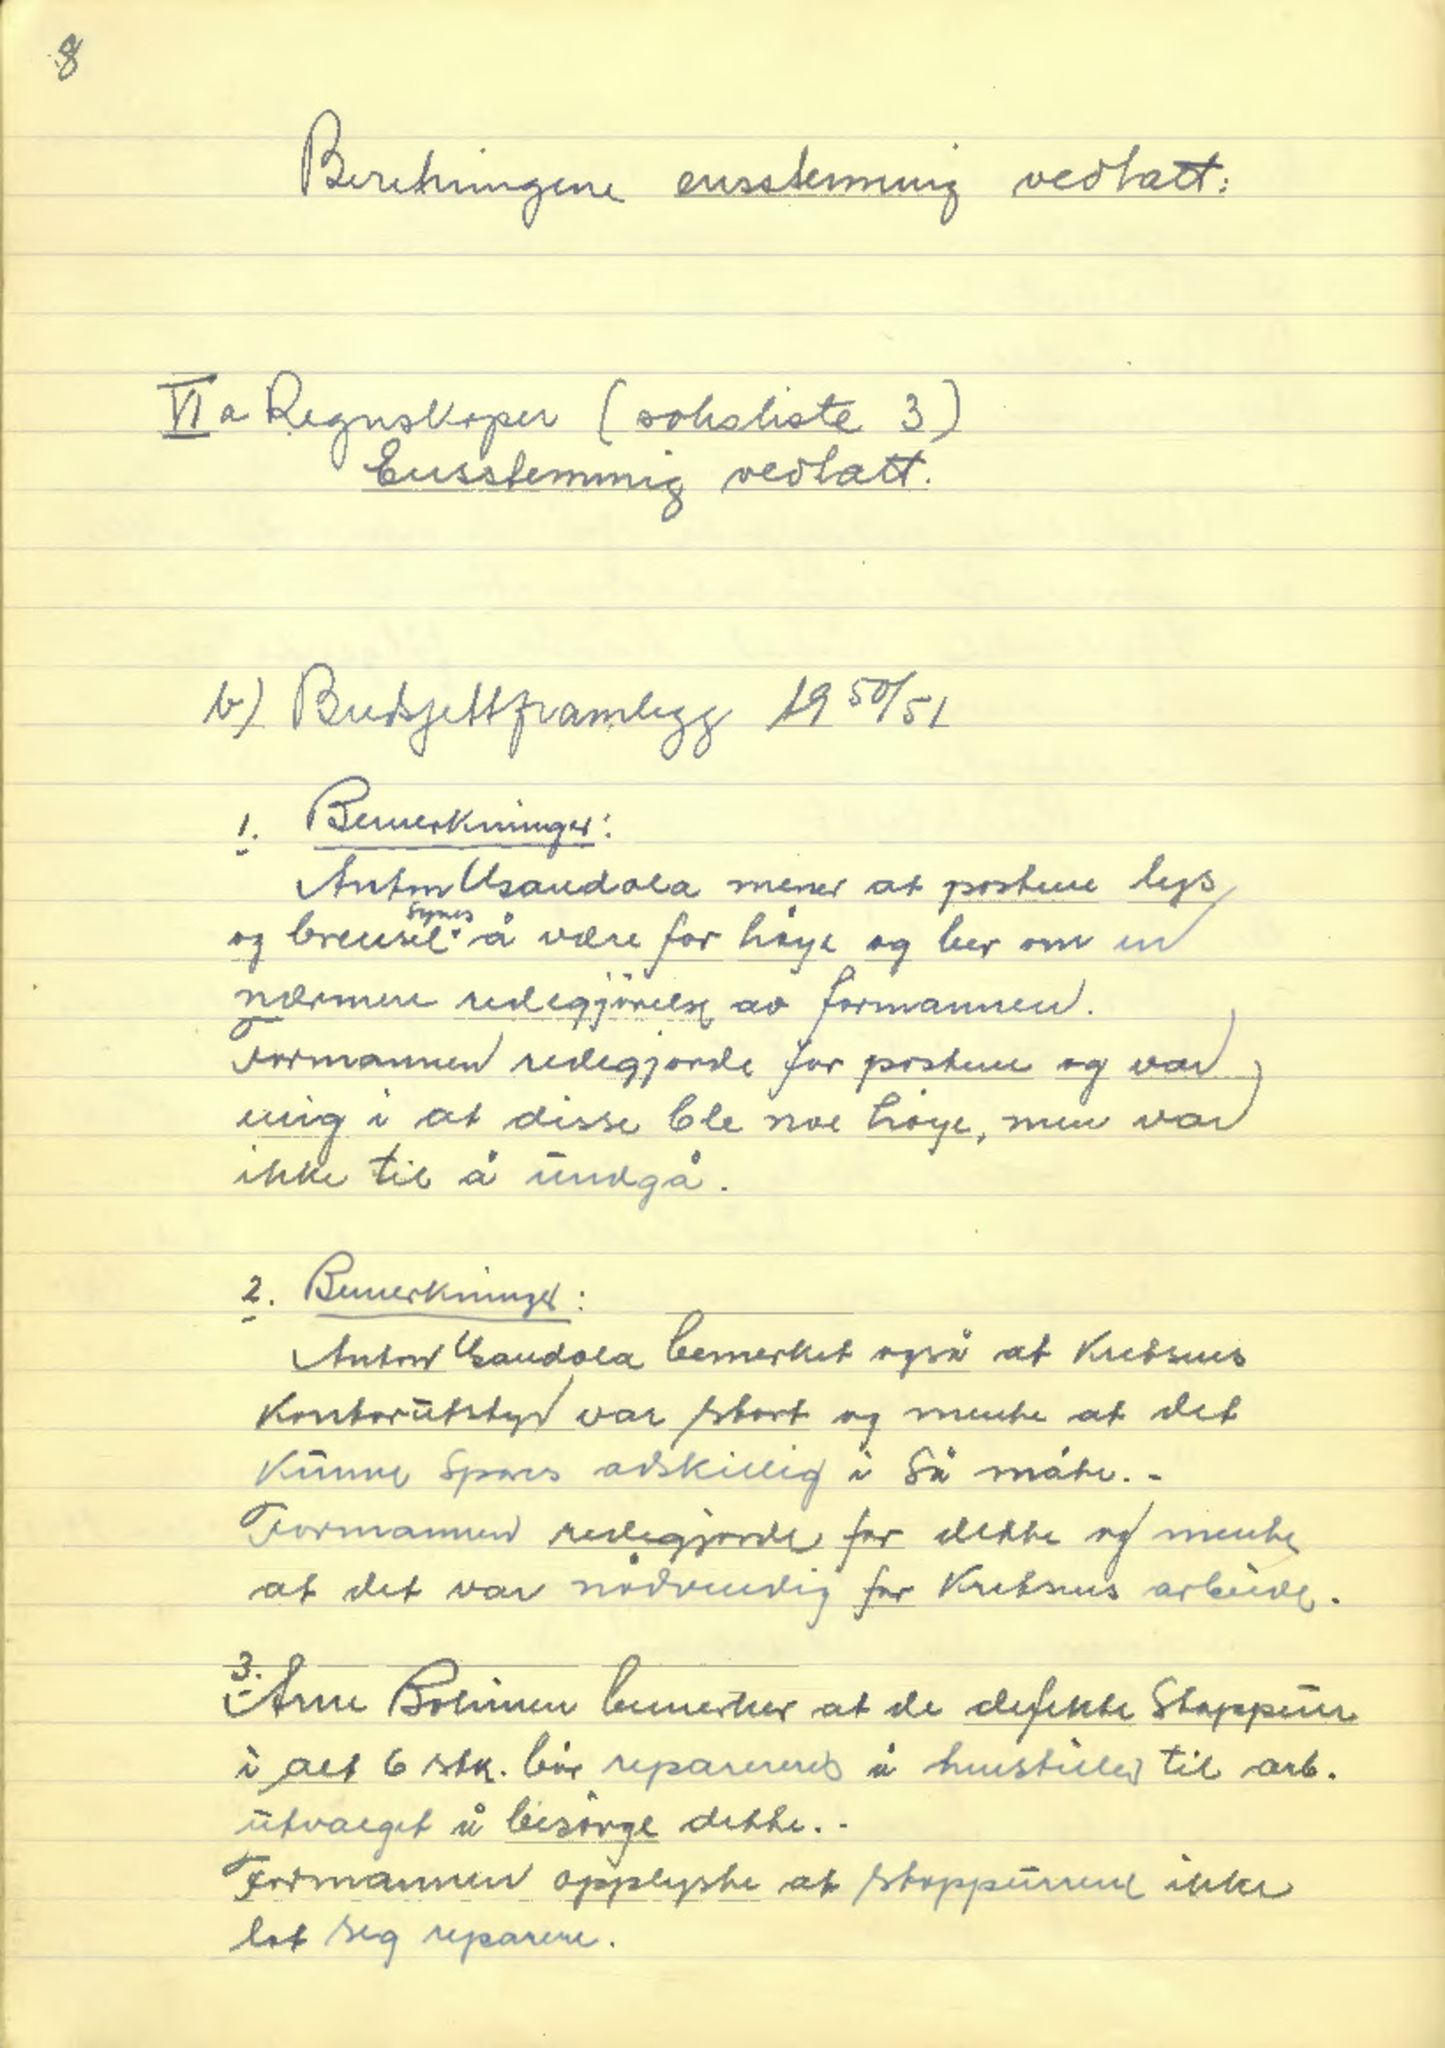 8
Beretningene ensstemmig vedtatt:
VI a Regnskaper (saksliste 3)
Ensstemmig vedtatt.
b) Budsjettframlegg 1950/51
1. Bemerkninger:
Anton mener at postene lys
og brensel synes å være for høye og ber om en
nærmere redegjörelse av formannen.
Formannen redegjorde for postene og var
enig i at disse ble noe høye, men var
ikke til å undgå.
2. Bemerkninger:
Anton bemerket også at Kretsens
Kontorutstyr var stort og mente at det
Kunne spares adskillig i så måte. -
Formannen redegjorde for dette og mente
at det var nödvendig for Kretsens arbeide.
3.
Arne bemerker at de defekte Stoppeur
i alt 6 stk. bör repareres å henstiller til arb.
utvalget å besörge dette. -
Formannen opplyste at stoppeurene ikke
lot seg reparere.